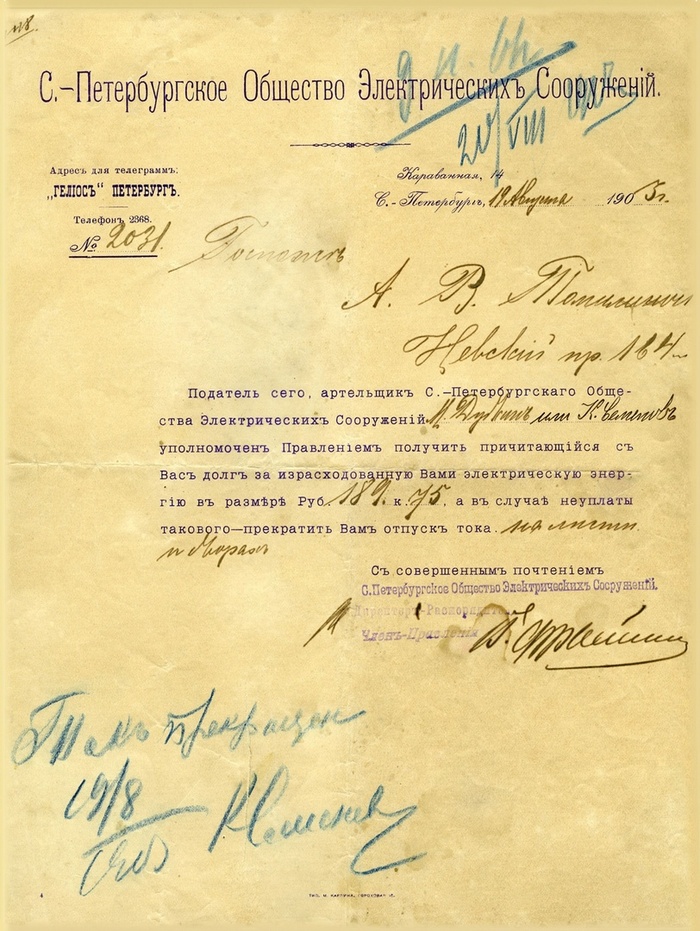 С.-Петербургское Общество Электрическихъ Сооруженій.
20/VIII
Адресъ для телеграммъ:
„ГЕЛІОСЪ“ ПЕТЕРБУРГЪ.
Телефонъ 2368.
№ 2031.
Караванная, 14
С.-Петербургъ, 19 Августа 1903 г.
А. В.
Невскій пр. 164
Податель сего, артельщикъ С.-Петербургскаго Обще-
ства Электрическихъ Сооруженій или К. Семеновъ
уполномоченъ Правленіемъ получить причитающійся съ
Васъ долгъ за израсходованную Вами электрическую энер-
гію въ размѣрѣ Руб. 189. к. 75, а въ случаѣ неуплаты
такового—прекратить Вамъ отпускъ тока.
Съ совершеннымъ почтеніемъ
С.Петербургское Общество Электрическихъ Сооруженій.
Директоръ-Распорядитель
Членъ-Правленія
Токъ прекращен
19/8
К Семенов